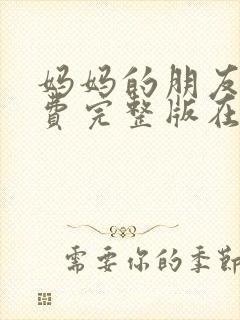 妈妈的朋友
费完整版在
需要你的季节